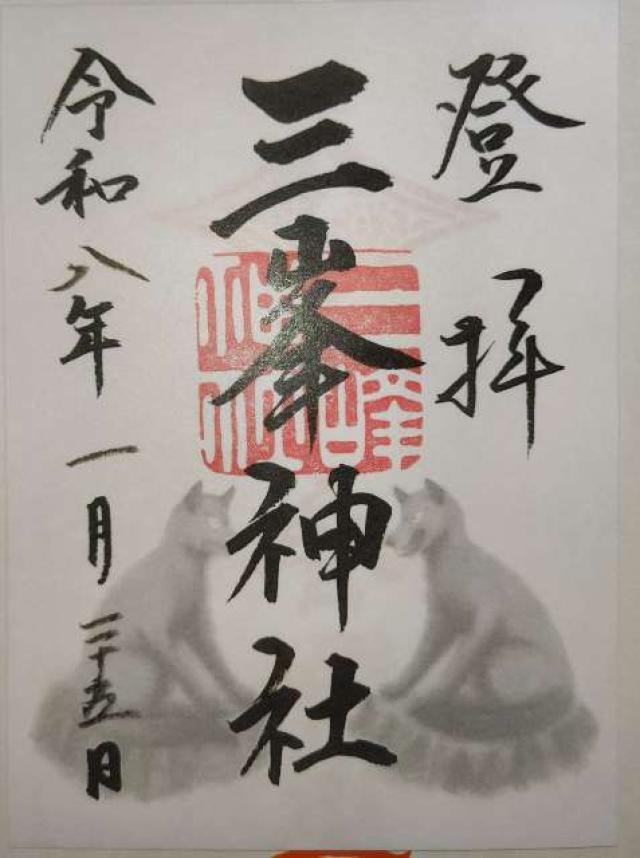 登拝
三峯神社
令和八年一月二十五日